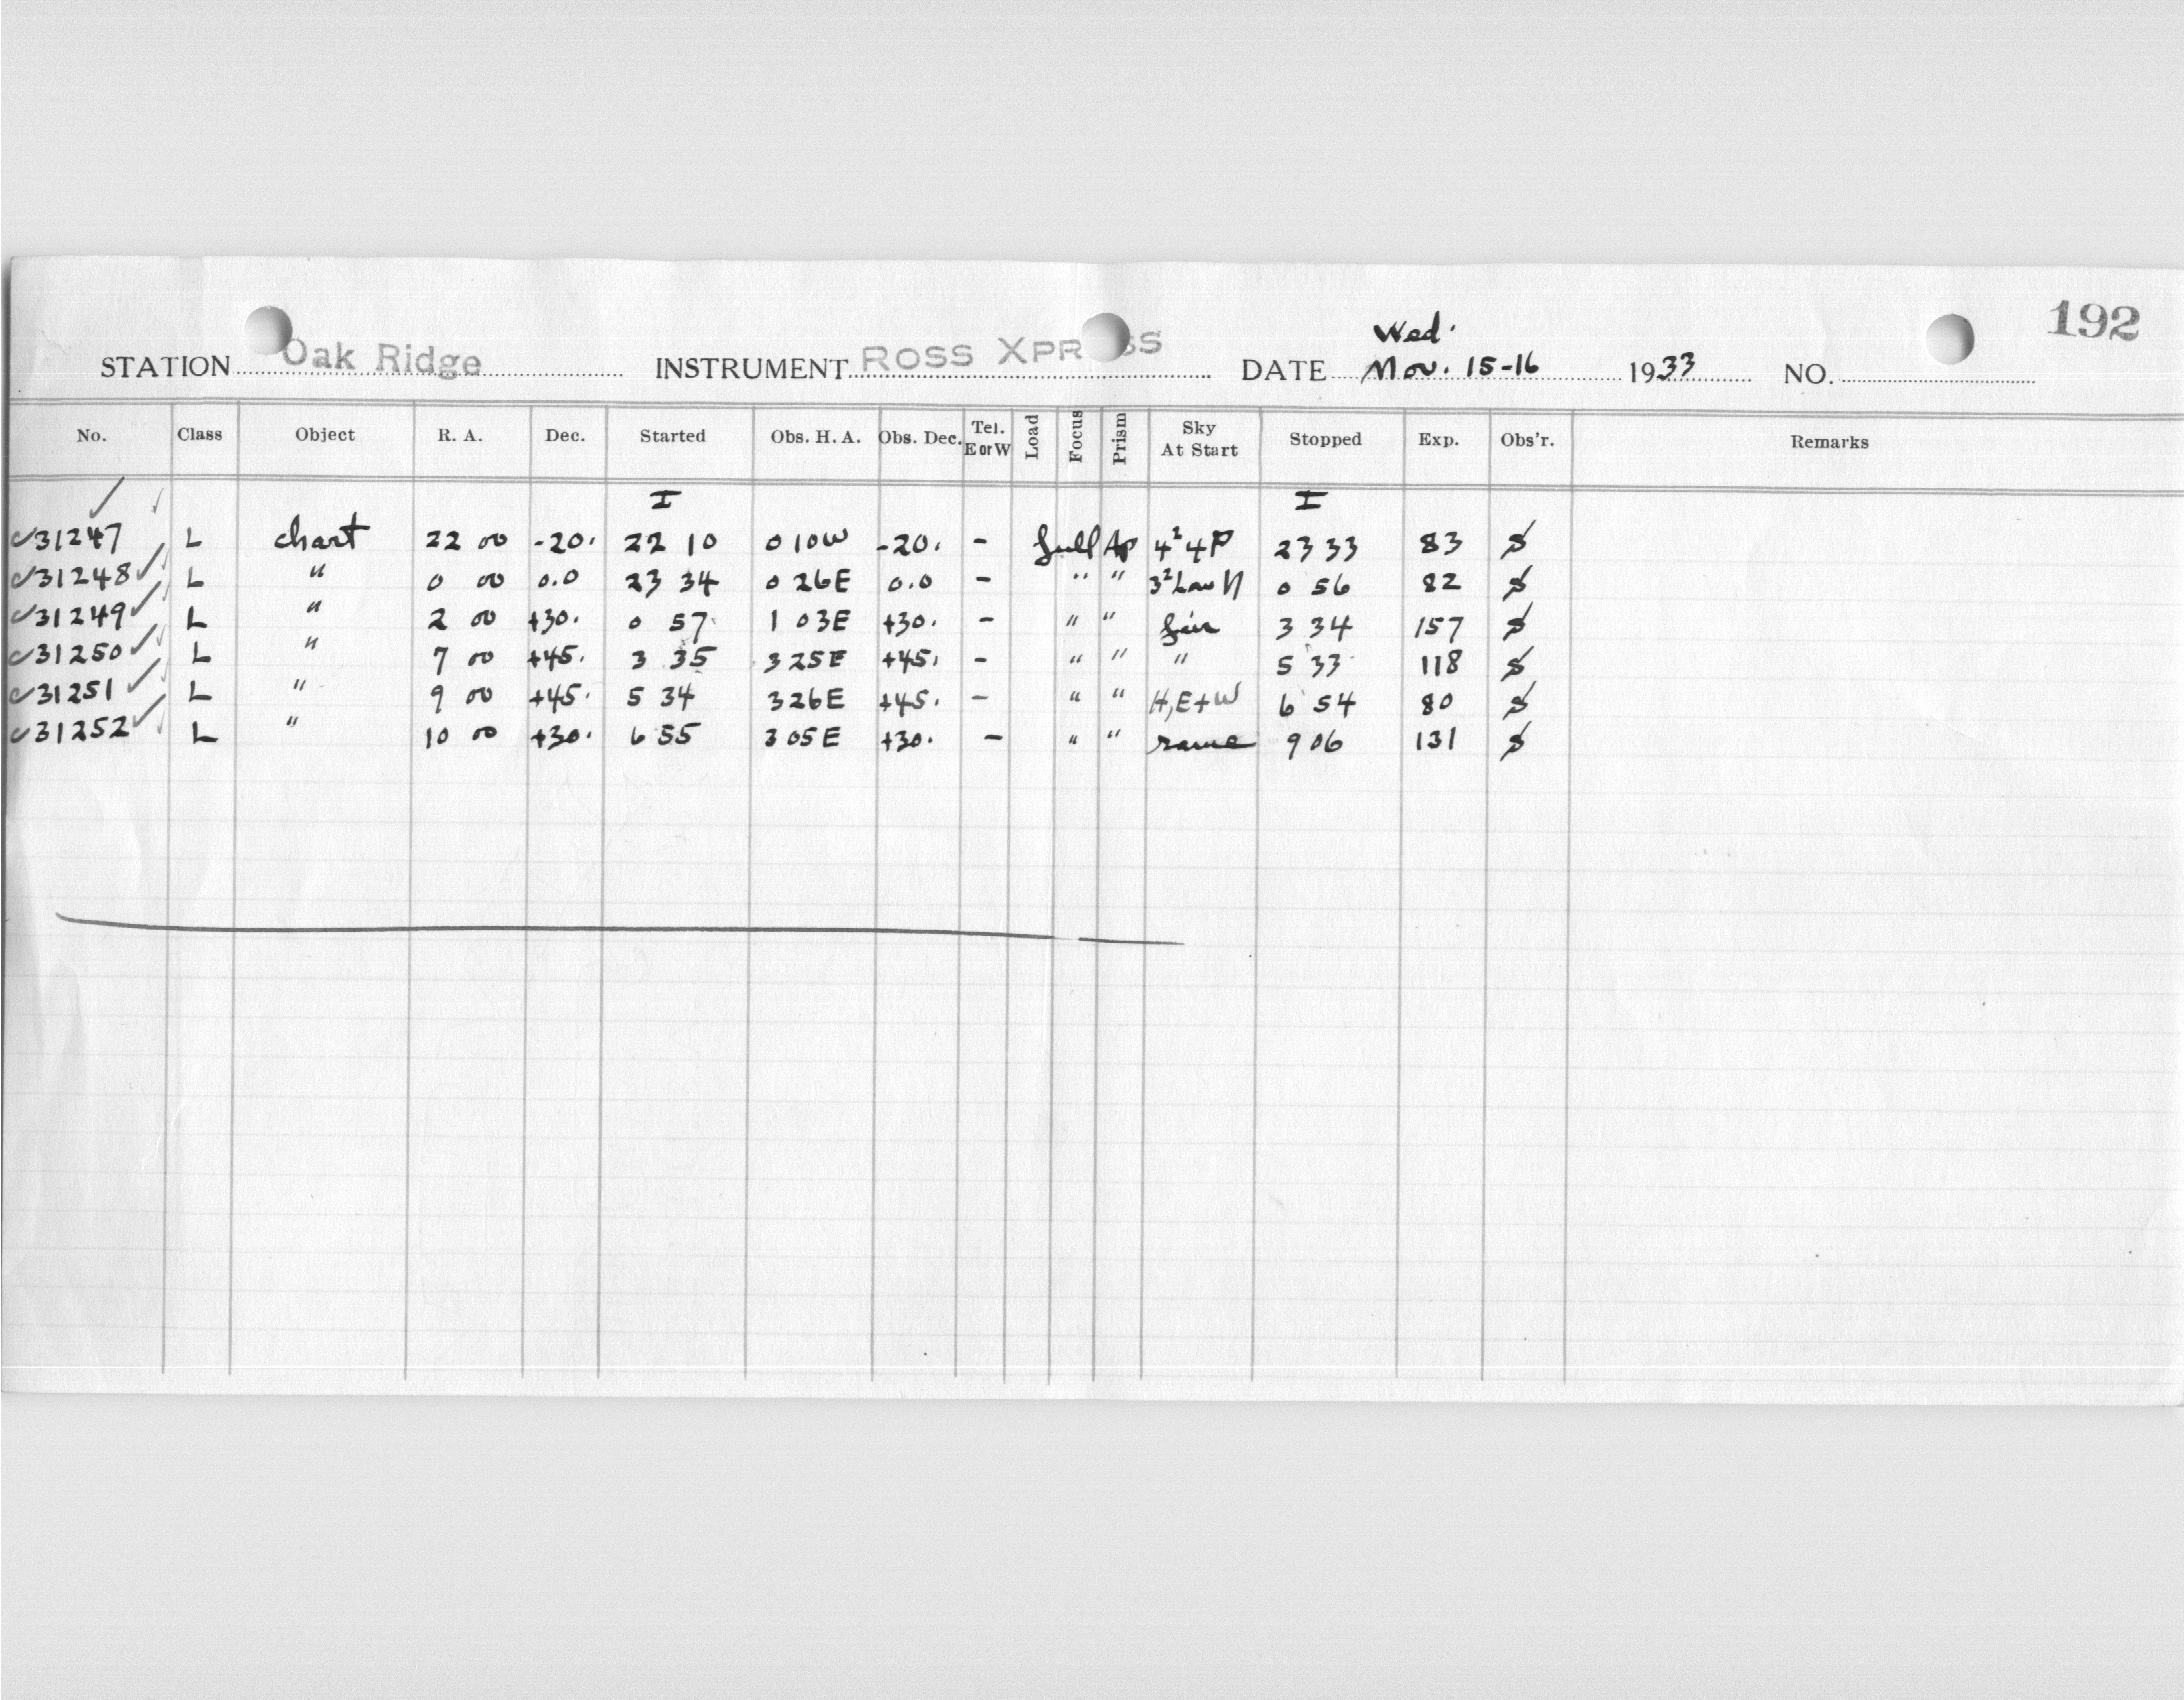 192
Wed.
STATION Oak Ridge INSTRUMENT ROSS XPRESS DATE Nov. 15-16 1933 NO.
No. Class Object R. A. Dec. Started Obs. H. A. Obs. Dec. Tel. E or W Load Focus Prism Sky At Start Stopped Exp. Obs'r. Remarks
I I
31247 L chart 22 00 -20. 22 10 0 10W -20. - full Ap 4² 4P 23 33 83
31248 L " 0 00 0.0 23 34 0 26E 0.0 - " " 3² Low N 0 56 82
31249 L " 2 00 +30. 0 57 1 03E +30. - " " fair 3 34 157
31250 L " 7 00 +45. 3 35 3 25E +45. - " " " 5 33 118
31251 L " 9 00 +45. 5 34 3 26E +45. - " " H, E+W 6 54 80
31252 L " 10 00 +30. 6 55 3 05E +30. - " " same 9 06 131